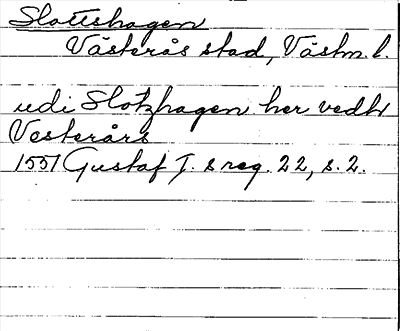 Slottshagen
Västerås stad, Västm. l.
udi Slotzhagen her vedh
Vesterårs
1551 Gustaf I. s reg. 22, s. 2.